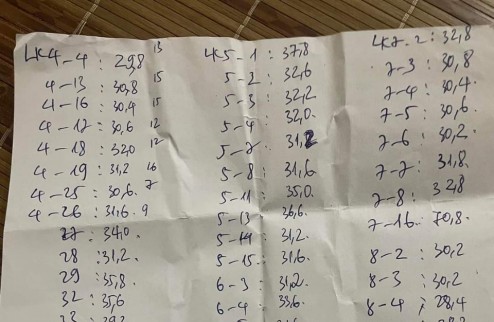 LK4-4 : 29,8 13
4-13 : 30,8 15
4-16 : 30,4 15
4-17 : 30,6 12
4-18 : 32,0 12
4-19 : 31,2 16
4-25 : 30,6. 7
4-26 : 31,6. 9
27 : 34,0.
28 : 31,2.
29 : 35,8.
32 : 35,6
LK5-1 : 37,8
5-2 : 32,6
5-3 : 32,2
5-4 : 32,0.
5-7 : 31,2
5-8 : 31,6.
5-11 : 35,0.
5-13 : 36,6.
5-14 : 31,2.
5-15 : 31,6.
6-3 : 31,2.
6-4 : 33,6.
LK7-2 : 32,8
7-3 : 30,8
7-4 : 30,4.
7-5 : 30,6.
7-6 : 30,2.
7-7 : 31,8.
7-8 : 32,8
7-16 : 70,8.
8-2 : 30,2
8-3 : 30,2
8-4 : 28,4